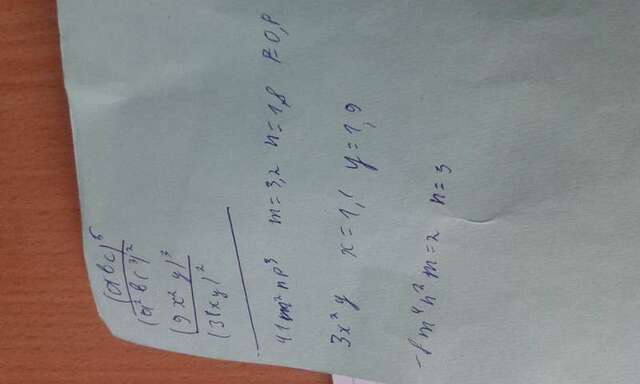 (abc)⁵
(a²bc³)²
(9x²y)³
(38xy)²
41m²np³ m=3,2 n=1,8 P=0,8
3x²y x=1,1 y=1,9
-8m⁴n² m=2 n=3